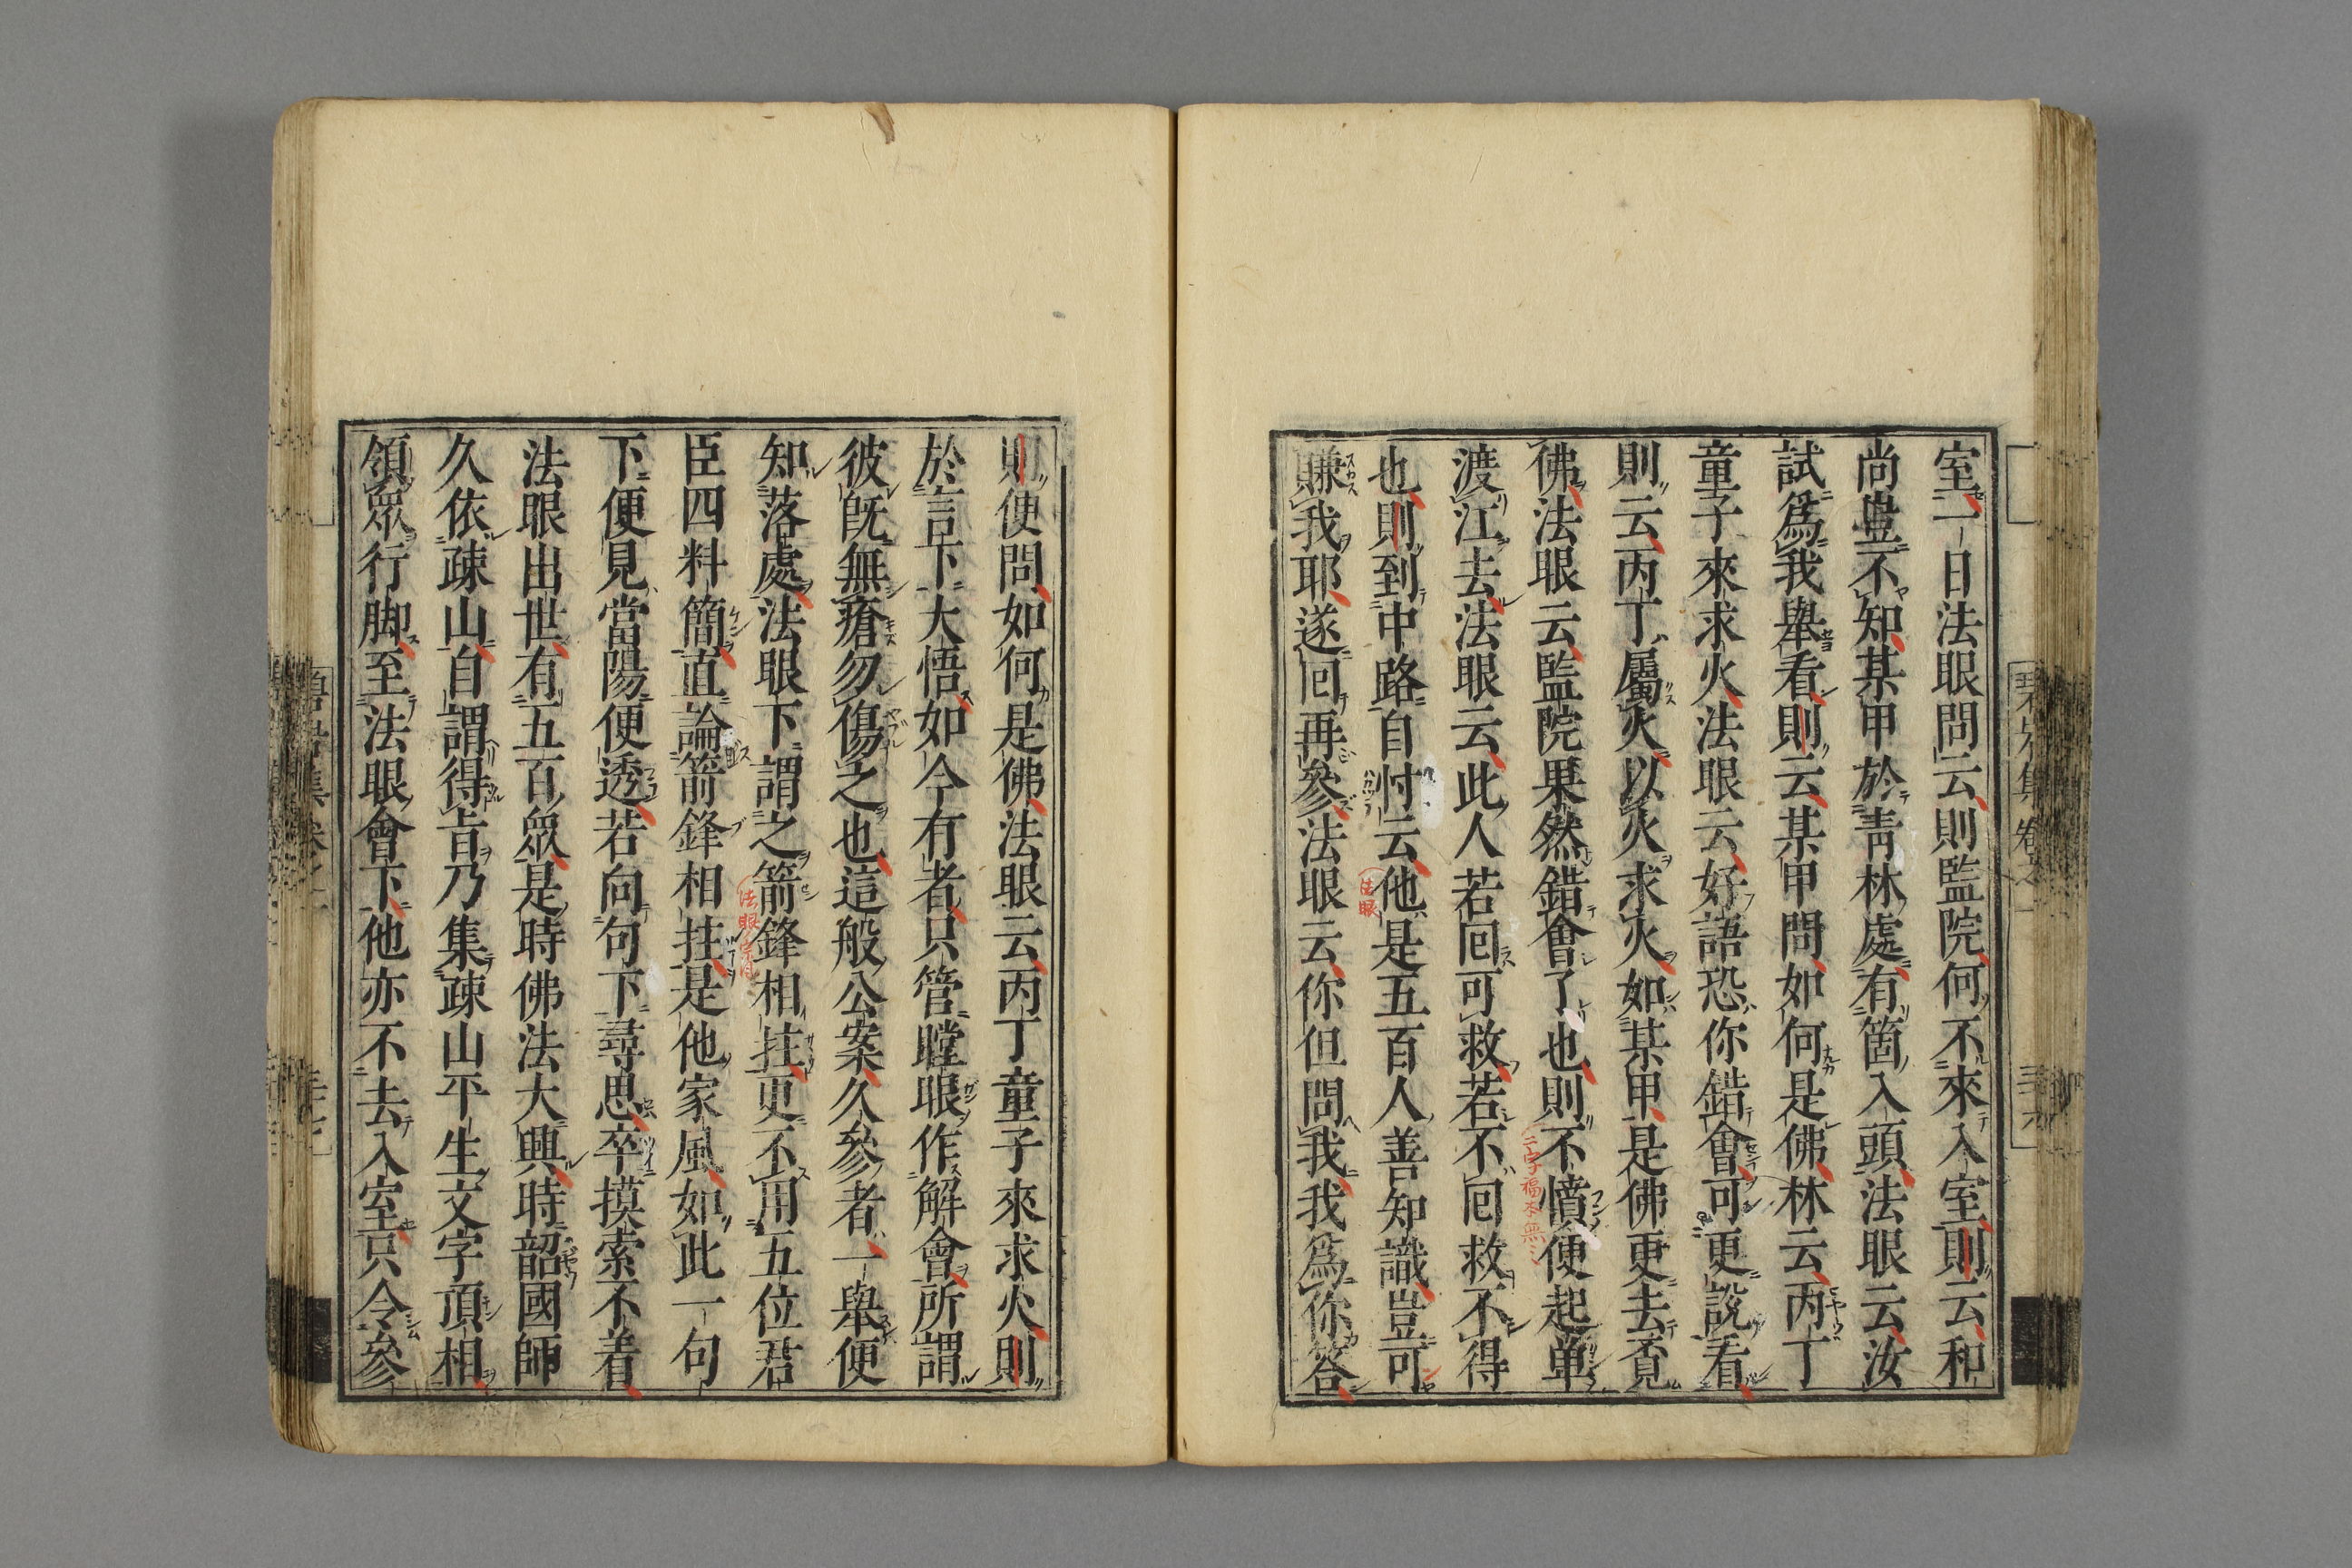 室一日法眼問云則監院何不來入室則云和
尚豈不知某甲於靑林處有箇入頭法眼云汝
試爲我舉看則云某甲問如何是佛林云丙丁
童子來求火法眼云好語恐你錯會可更說看
則云丙丁屬火以火求火如某甲是佛更去覓
佛法眼云監院果然錯會了也則不憤便起單
渡江去法眼云此人若囘可救若不囘救不得
也則到中路自忖云他是五百人善知識豈可
賺我耶遂囘再參法眼云你但問我我爲你答
則便問如何是佛法眼云丙丁童子來求火則
於言下大悟如今有者只管瞠眼作解會所謂
彼既無瘡勿傷之也這般公案久參者一舉便
知落處法眼下謂之箭鋒相拄更不用五位君
臣四料簡直論箭鋒相拄是他家風如此一句
下便見當陽便透若向句下尋思卒摸索不着
法眼出世有五百衆是時佛法大興時韶國師
久依疎山自謂得旨乃集疎山平生文字頂相
領衆行脚至法眼會下他亦不去入室只令參
法眼
二字福本無
法眼宗